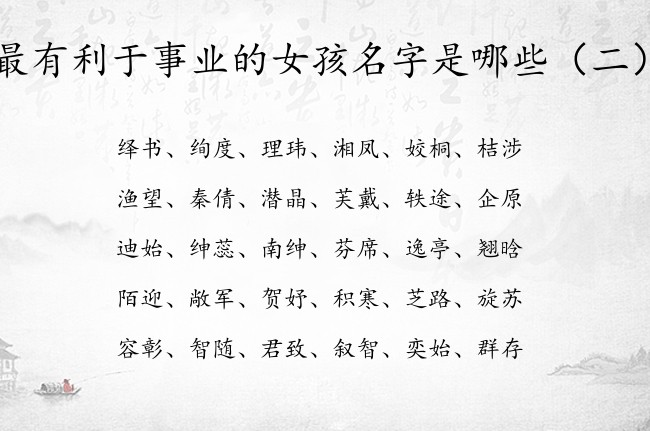 最有利于事业的女孩名字是哪些（二）
绎书、绚度、理玮、湘凤、姣桐、桔涉
渔望、秦倩、潜晶、芙戴、轶途、企原
迪始、绅蕊、南绅、芬席、逸亭、翘晗
陌迎、敞军、贺妤、积寒、芝路、旋苏
容彰、智随、君致、叙智、奕始、群存